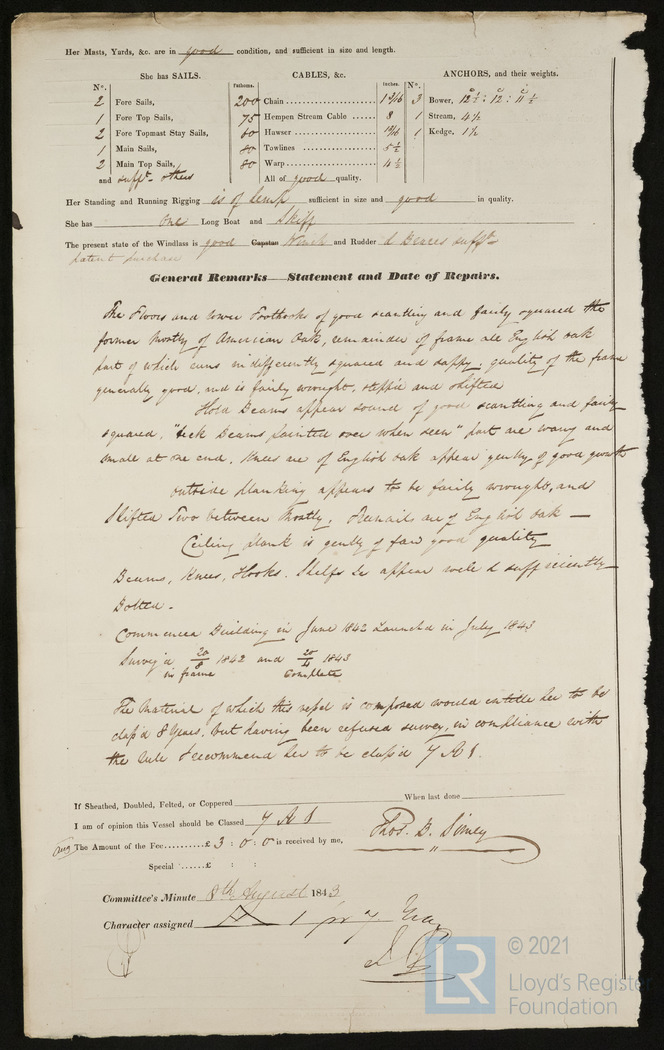 Her Masts, Yards, &c. are in good condition, and sufficient in size and length.
She has SAILS.
No.
2 Fore Sails,
1 Fore Top Sails,
2 Fore Topmast Stay Sails,
1 Main Sails,
2 Main Top Sails,
and sufft. others
CABLES, &c.
Fathoms. Inches.
200 Chain 1 3/16
75 Hempen Stream Cable 8
60 Hawser
80 Towlines 5½
80 Warp 4½
All of good quality.
ANCHORS, and their weights.
No.
3 Bower, 12½ : 12 : 11½
1 Stream, 4½
1 Kedge, 1½
Her Standing and Running Rigging is of hemp sufficient in size and good in quality.
She has one Long Boat and Skiff
The present state of the Windlass is good Capstan Winch and Rudder & Braces sufft.
patent purchase
General Remarks—Statement and Date of Repairs.
The Floors and lower Foothooks of good scantling and fairly squared the
former mostly of American Oak, remainder of frame are English oak
part of which runs indifferently squared and sappy. quality of the frame
generally good, and is fairly wrought, and shifted
Hold Beams appear sound of good scantling and fairly
squared, "Deck Beams painted over when seen" part are wany and
small at one end. Knees are of English oak appear genlly. of good growth
outside planking appears to be fairly wrought, and
Shifted Two between Mostly. Treenails are of English oak —
Ceiling plank is genlly of fair good quality
Beams, Knees, Hooks. Shelfs &c appear well & sufficiently
Bolted.
Commenced Building in June 1842 Launched in July 1843
Survey'd 20/8 1842 and 20/4 1843
in frame Complete
The Material of which this vessel is composed would intitle her to be
class'd 8 Years, but having been refused survey, in compliance with
the rule I recommend her to be class'd 7 A 1.
If Sheathed, Doubled, Felted, or Coppered When last done
I am of opinion this Vessel should be Classed 7 A 1
The Amount of the Fee £ 3 : 0 : 0 is received by me,
Thos. B. Simey
Special £ : :
Committee's Minute 8th August 1843
Character assigned A 1 for 7 Years
© 2021
LR
Lloyd's Register
Foundation